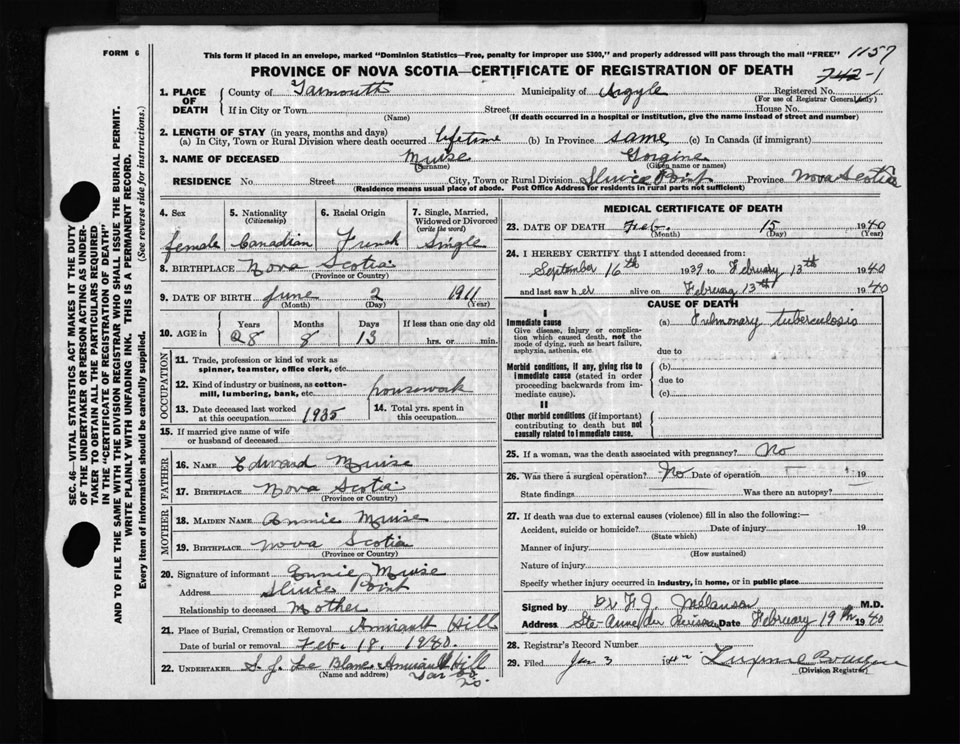 FORM 6
This form if placed in an envelope, marked "Dominion Statistics—Free, penalty for improper use $300," and properly addressed will pass through the mail "FREE"
1157
PROVINCE OF NOVA SCOTIA—CERTIFICATE OF REGISTRATION OF DEATH
742-1
1. PLACE OF DEATH County of Yarmouth Municipality of Argyle Registered No.
(For use of Registrar General only)
If in City or Town Street House No.
(Name) (If death occurred in a hospital or institution, give the name instead of street and number)
2. LENGTH OF STAY (in years, months and days)
(a) In City, Town or Rural Division where death occurred lifetime (b) In Province same (c) In Canada (if immigrant)
3. NAME OF DECEASED Muise Gorgine
(Surname) (Given name or names)
RESIDENCE No. Street City, Town or Rural Division Sluice Point Province Nova Scotia
(Residence means usual place of abode. Post Office Address for residents in rural parts not sufficient)
4. Sex female
5. Nationality (Citizenship) Canadian
6. Racial Origin French
7. Single, Married, Widowed or Divorced (write the word) Single
8. BIRTHPLACE Nova Scotia
(Province or Country)
9. DATE OF BIRTH June 2 1911
(Month) (Day) (Year)
10. AGE in Years Months Days If less than one day
28 8 13 hrs. or min.
OCCUPATION
11. Trade, profession or kind of work as spinner, teamster, office clerk, etc.
12. Kind of industry or business, as cotton-mill, lumbering, bank, etc. housework
13. Date deceased last worked at this occupation 1935
14. Total yrs. spent in this occupation
15. If married give name of wife or husband of deceased
FATHER
16. NAME Edward Muise
17. BIRTHPLACE Nova Scotia
(Province or Country)
MOTHER
18. MAIDEN NAME Annie Muise
19. BIRTHPLACE Nova Scotia
(Province or Country)
20. Signature of informant Annie Muise
Address Sluice Point
Relationship to deceased Mother
21. Place of Burial, Cremation or Removal Amirault Hill
Date of burial or removal Feb. 18. 1940.
22. UNDERTAKER S. J. Le Blanc Amirault Hill
(Name and address) Yar Co N.S.
MEDICAL CERTIFICATE OF DEATH
23. DATE OF DEATH Feb. 15 1940
(Month) (Day) (Year)
24. I HEREBY CERTIFY that I attended deceased from:
September 16th 1939 to February 13th 1940
and last saw her alive on February 13th 1940
CAUSE OF DEATH
I
Immediate cause (a) Pulmonary tuberculosis
Give disease, injury or complication which caused death, not the mode of dying, such as heart failure, asphyxia, asthenia, etc.
due to
Morbid conditions, if any, giving rise to immediate cause (stated in order proceeding backwards from immediate cause).
(b)
due to
(c)
II
Other morbid conditions (if important) contributing to death but not causally related to immediate cause.
25. If a woman, was the death associated with pregnancy? No
26. Was there a surgical operation? No Date of operation 19
State findings Was there an autopsy?
27. If death was due to external causes (violence) fill in also the following:—
Accident, suicide or homicide? Date of injury 19
(State which)
Manner of injury
(How sustained)
Nature of injury
Specify whether injury occurred in industry, in home, or in public place
Signed by Dr F. J. Melanson M.D.
Address Ste-Anne du Ruisseau Date February 19th 1940
28. Registrar's Record Number
29. Filed Jan 3
(Division Registrar)
SEC. 46—VITAL STATISTICS ACT MAKES IT THE DUTY
OF THE UNDERTAKER OR PERSON ACTING AS UNDER-
TAKER TO OBTAIN ALL THE PARTICULARS REQUIRED
IN THE "CERTIFICATE OF REGISTRATION OF DEATH"
AND TO FILE THE SAME WITH THE DIVISION REGISTRAR WHO SHALL ISSUE THE BURIAL PERMIT.
WRITE PLAINLY WITH UNFADING INK. THIS IS A PERMANENT RECORD.
Every item of information should be carefully supplied. (See reverse side for instructions.)